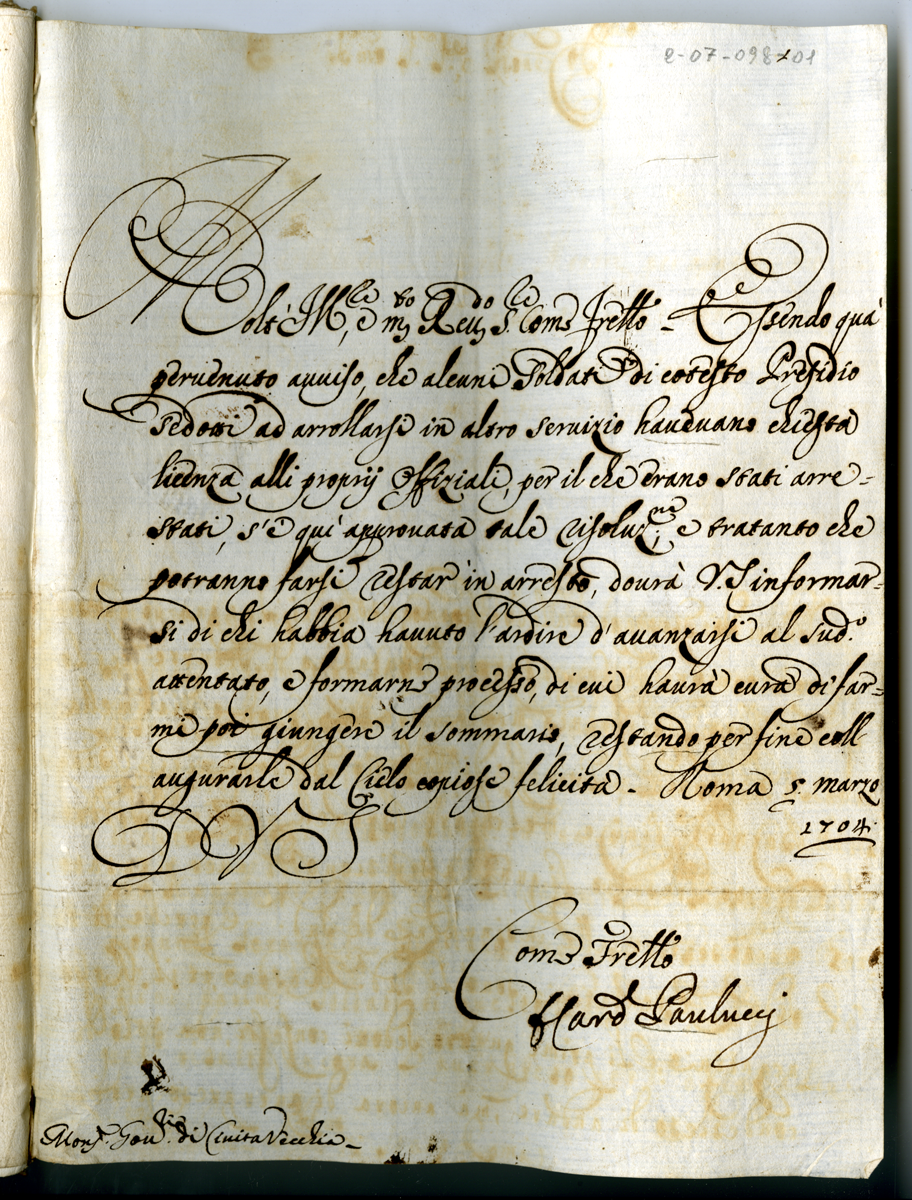 2-07-098-01
Molt' Ill.re, e m.to Reu.do S.re Come Frello - Essendo quà
peruenuto auuiso, che alcuni Soldati di cotesto Presidio
sedotti ad arrollarsi in altro seruizio haueuano chiesta
licenza alli proprij Offiziali, per il che erano stati arre-
stati, s'è quì approuata tale risoluz.ne, e tratanto che
potranno farsi restar' in arresto, dourà V.S informar-
si di chi habbia hauuto l'ardire d'auanzarsi al sud.o
attentato, e formarne processo, di cui haurà cura di far-
mi poi giungere il sommario, restando per fine coll
augurarle dal Cielo copiose felicità - Roma 5. marzo
1704.
D V S
Come Frello
F Card Paulucci
Mons.r Gou.re di Ciuita Vecchia -